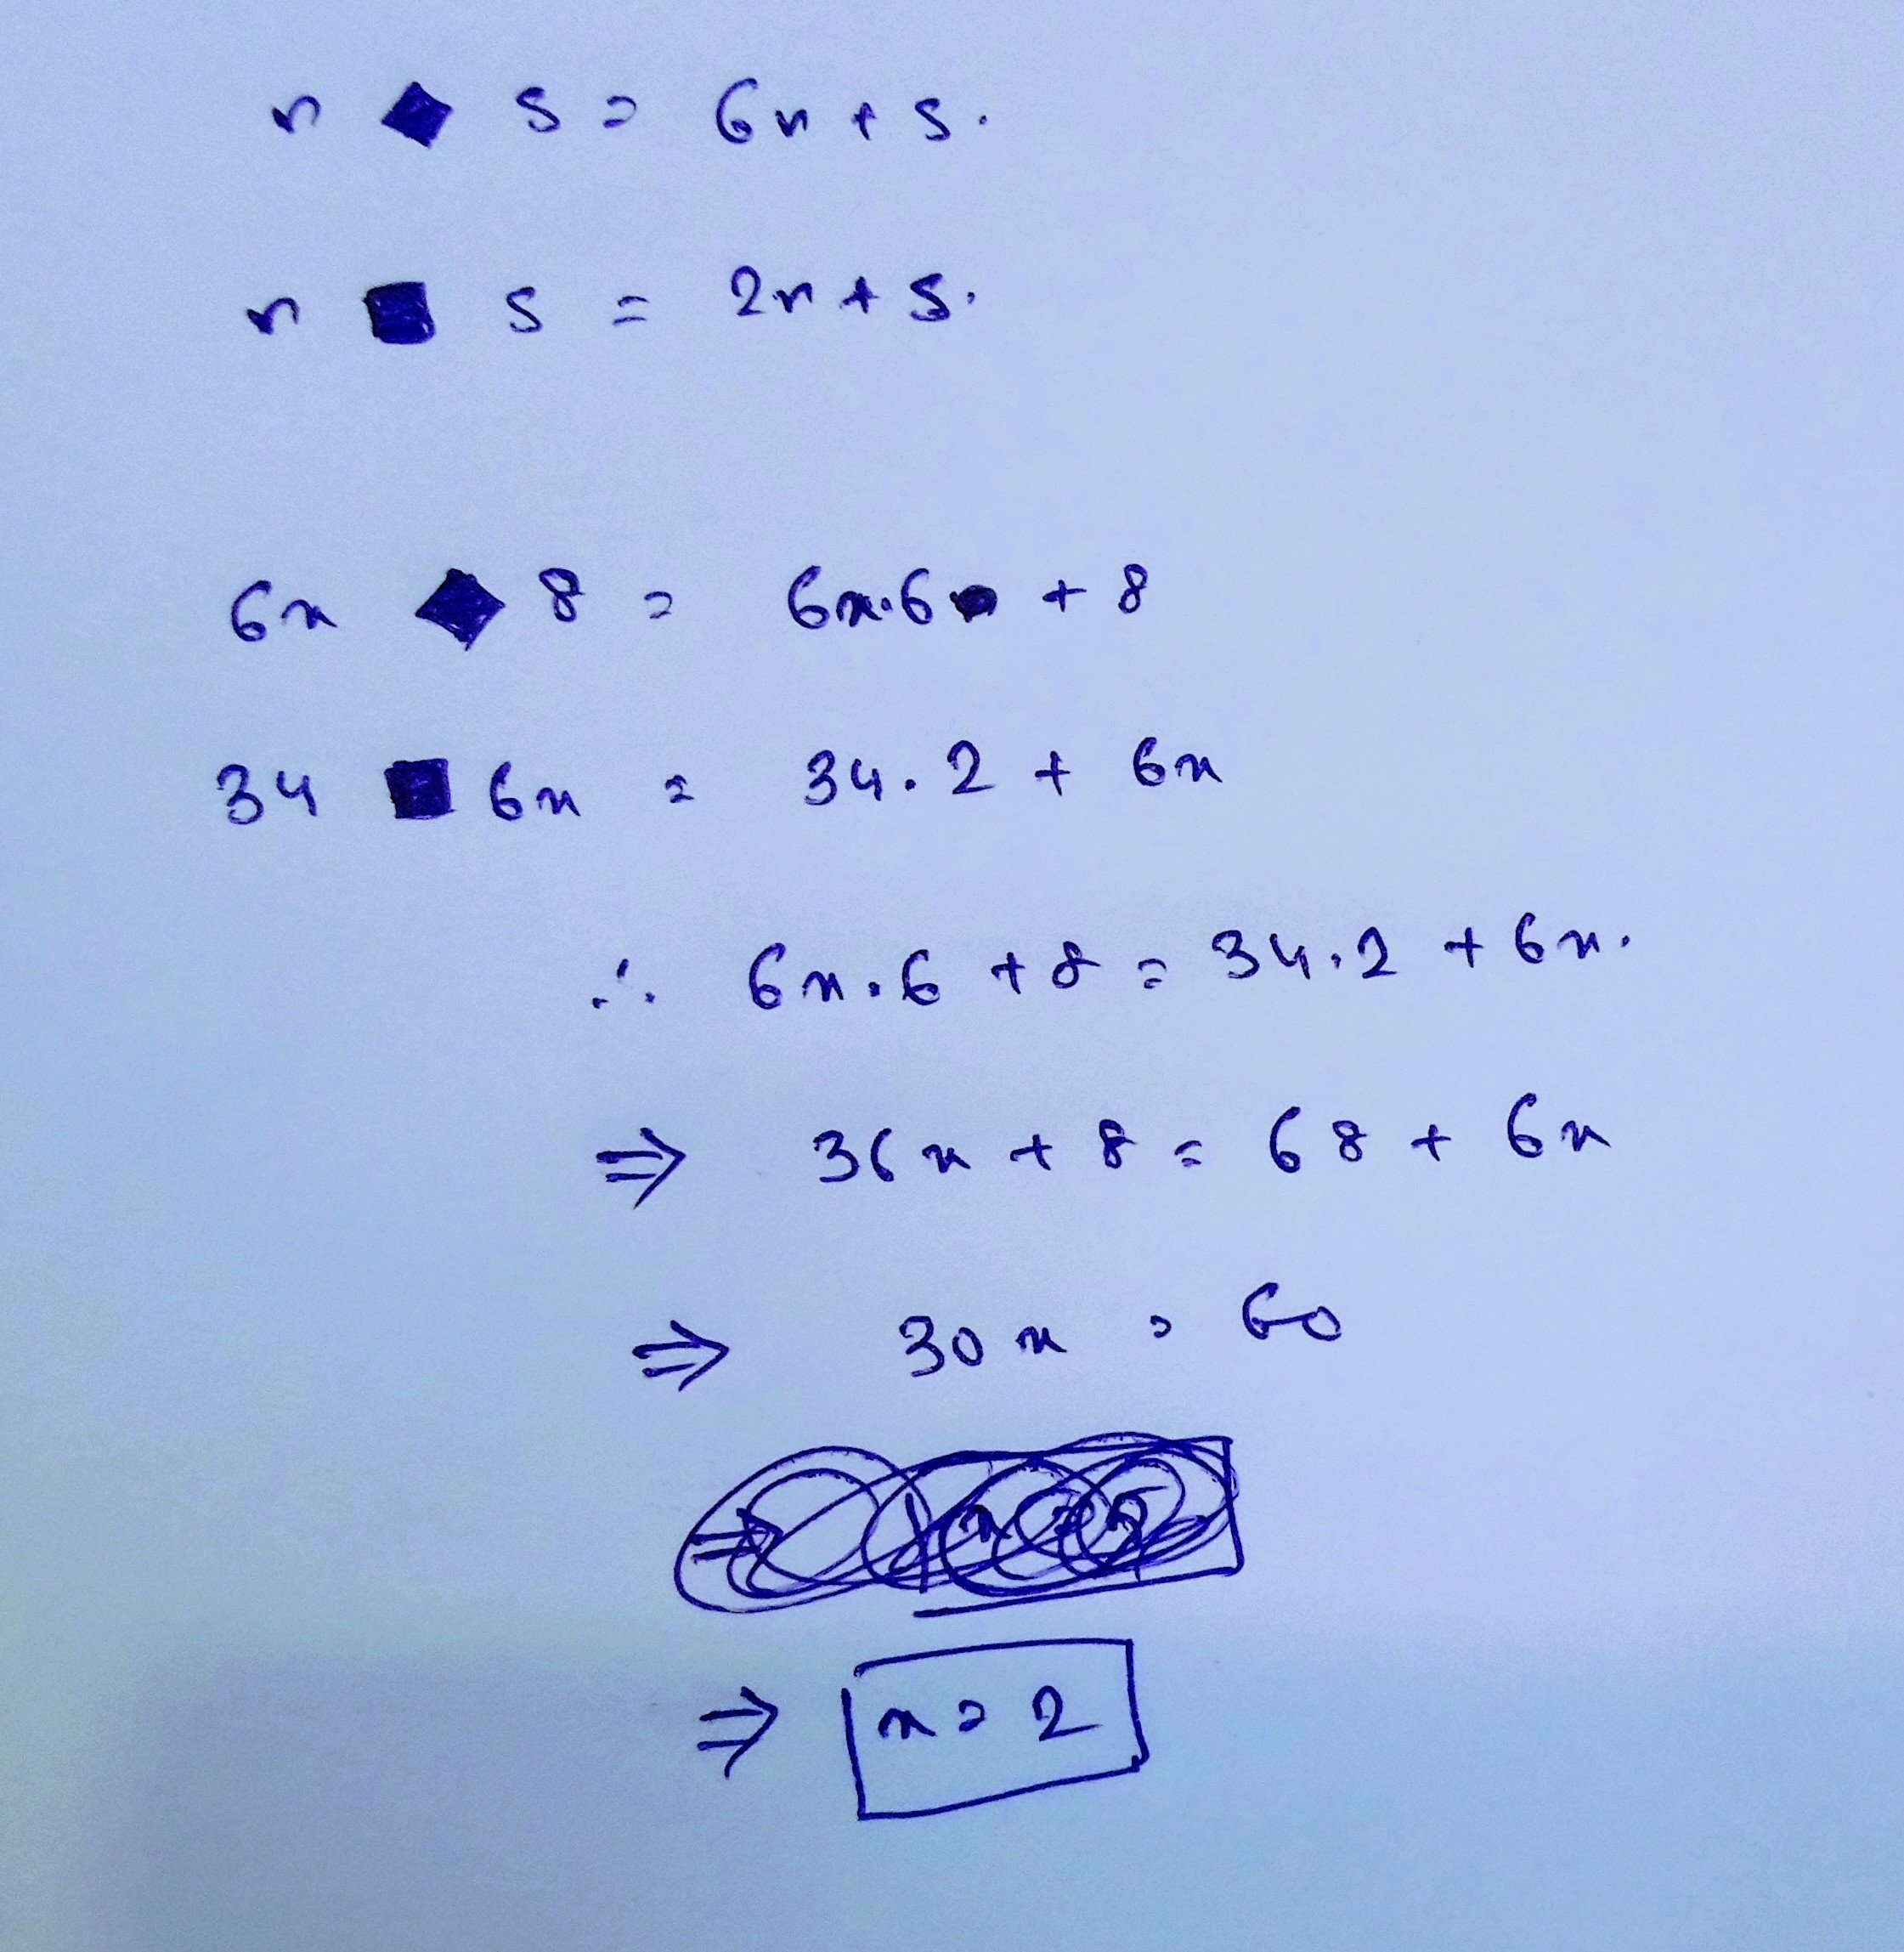 r ◆ s = 6r + s.
r ■ s = 2r + s.
6x ◆ 8 = 6x.6 + 8
34 ■ 6x = 34.2 + 6x
∴ 6x.6 + 8 = 34.2 + 6x.
⇒ 36x + 8 = 68 + 6x
⇒ 30x = 60
⇒ x = 2